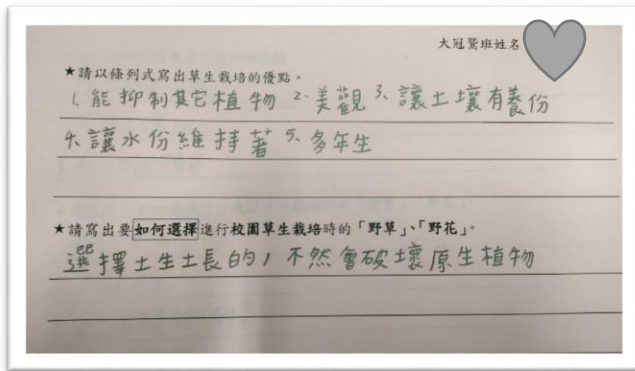 大冠鷲班姓名
★請以條列式寫出草生栽培的優點。
1. 能抑制其它植物 2. 美觀 3、讓土壤有養份
4、讓水份維持著 5、多年生
★請寫出要如何選擇進行校園草生栽培時的「野草」、「野花」。
選擇土生土長的，不然會破壞原生植物